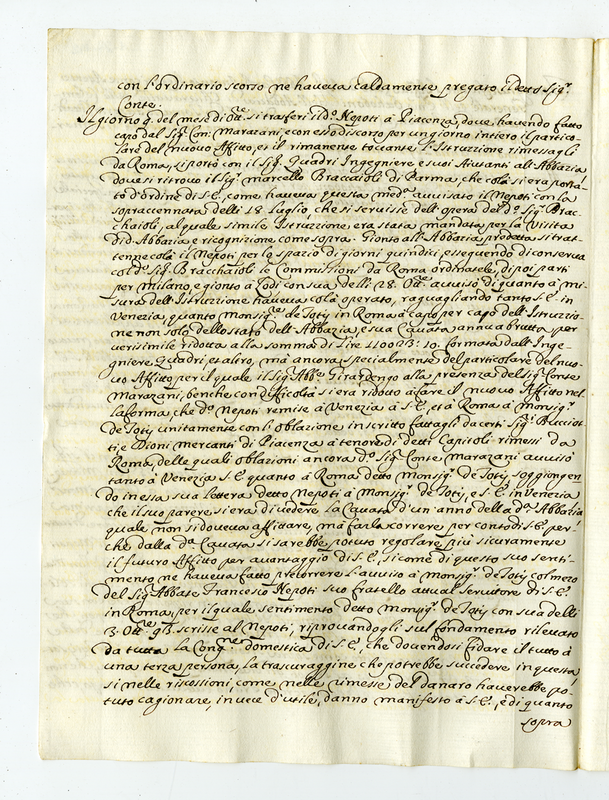 con l'ordinario scorso ne haveva caldamente pregato il detto Sig.r
Conte.
Il giorno 9. del mese di 8bre si trasferì il d.o Nepoti à Piacenza, dove havendo fatto
capo dal Sig.r Con: Marazani, e con esso discorso per un giorno intiero il partico-
lare del nuovo Affitto, et il rimanente toccante l'Istruzione rimessagli
da Roma, si portò con il Sig.r Quadri Ingegniere e suoi Aiutanti all'Abbazia
dove si ritrovò il Sig.r Marcello Braccaioli di Parma, che colà si era porta-
to d'ordine di S.E. come haveva questa med.a avvisato il Nepoti con la
sopraccennata delli 18 Luglio, che si servisse dell'opera del d.o Sig.r Brac-
chaioli, al quale simile Istruzione era stata mandata per la Visita
di d.a Abbazia e ricognizione come sopra. Gionto all'Abbazia predetta si trat-
tenne colà il Nepoti per lo spazio di giorni quindici esseguendo di conserva
col d.o Sig.r Bracchaioli le Commissioni da Roma ordinatele, di poi partì
per Milano, e gionto à Lodi con sua delli 28. 8bre avvisò di quanto à mi-
sura dell'Istruzione haveva colà operato, raguagliando tanto S.E. in
Venezia, quanto Monsig.r de Toty in Roma à capo per capo dell'Istruzzio-
ne non solo dello stato dell'Abbazia, e sua Cavata annua brutta per
verisimile ridotta alla somma di Lire 110023: 10. formata dall'Inge-
gniere Quadri, et altro, mà ancora specialmente del particolare del nuo-
vo Affitto per il quale il Sig.r Abb.e Girardengo alla presenza del Sig.r Conte
Marazani, benche con difficoltà si era ridotto à fare il nuovo Affitto nel
la forma, che d.o Nepoti remise à Venezia à S.E., et à Roma à Monsig.r
de Toty unitamente con l'oblazione in scritto fattagli da certi Sig.ri Bucciot-
ti, e Dioni mercanti di Piacenza à tenore di detti Capitoli rimessi da
Roma, delle quali oblazioni ancora d.o Sig.r Conte Marazani avvisò
tanto à Venezia S.E. quanto à Roma detto Monsig.r de Toty, soggiongen
do in essa sua lettera detto Nepoti à Monsig.r de Toty, e S.E. in Venezia
che il suo parere si era di vedere la Cavata d'un anno della d.a Abbazia
quale non si doveva affittare, mà farla correre per conto di S.E. per-
che dalla d.a Cavata si sarebbe potuto regolare più sicuramente
il futuro Affitto per avantaggio di S.E., si come di questo suo senti-
mento ne haveva fatto precorrere l'avviso à Monsig.r de Toty col mezo
del Sig.r Abbate Francesco Nepoti suo fratello attual servitore di S.E.
in Roma, per il quale sentimento detto Monsig.r de Toty con sua delli
3. 8bre 93. scrisse al Nepoti, riprovandogli sul fondamento rilevato
da tutta la Cong.ne domestica di S.E., che dovendosi fidare il tutto à
una terza persona, la trascuraggine che potrebbe succedere in questa
si nelle riscossioni, come nelle rimesse del danaro haverebbe po-
tuto cagionare, in vece d'utile, danno manifesto à S.E.; e di quanto
sopra